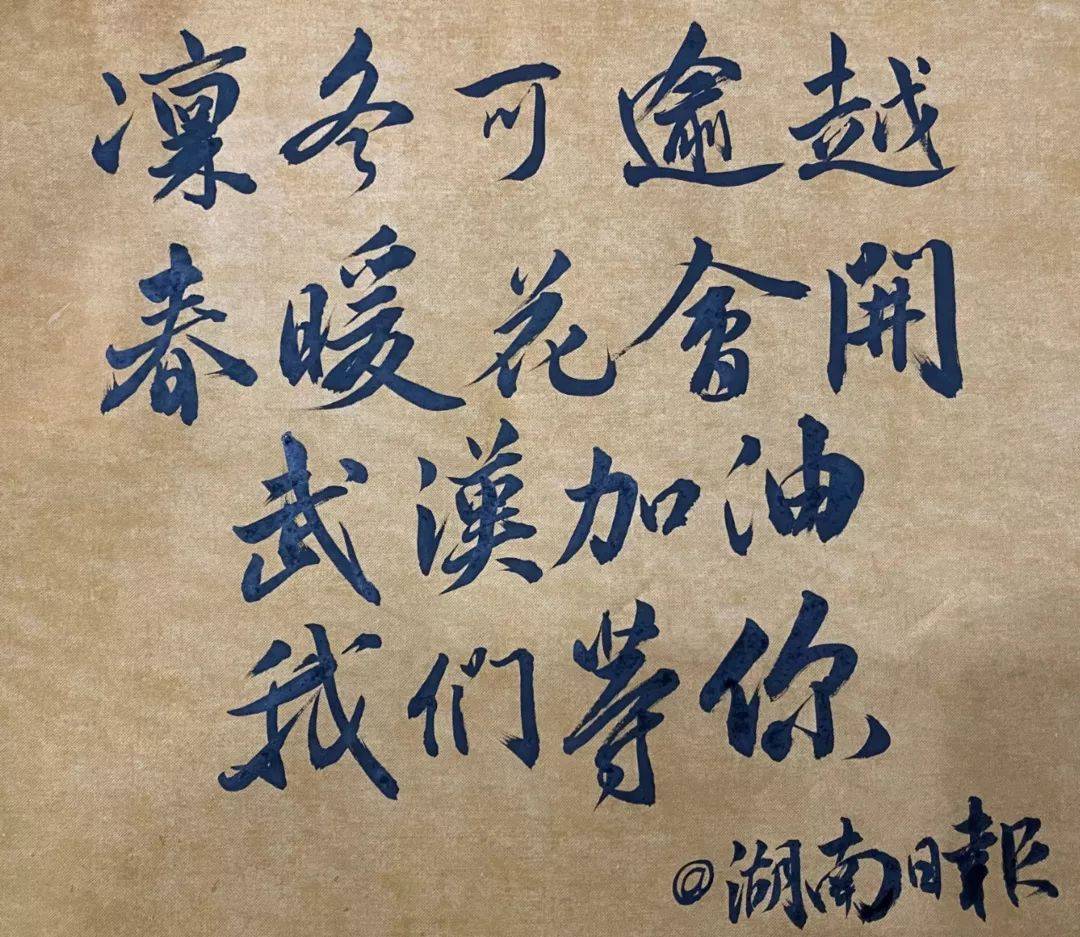 凛冬可逾越
春暖花會開
武漢加油
我们等你
@湖南日報